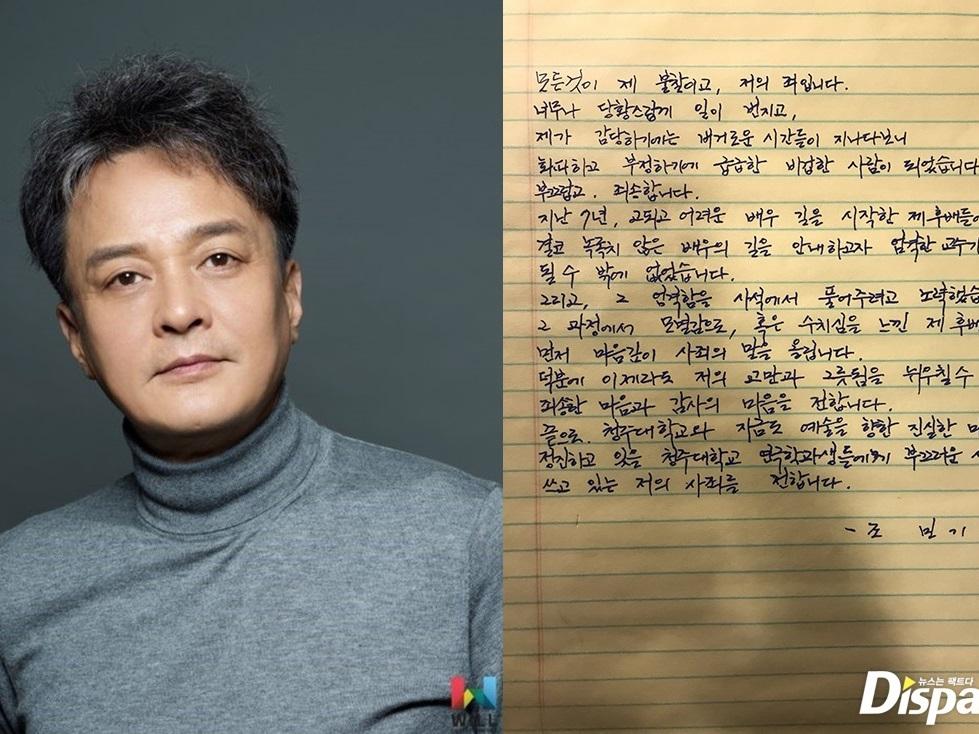 모든것이 제 불찰이고, 저의 죄입니다.
너무나 당황스럽게 일이 번지고,
제가 감당하기에는 버거로운 시간들이 지나다보니
회피하고 부정하기에 급급한 비겁한 사람이 되었습니다
부끄럽고. 죄송합니다.
지난 7년, 고되고 어려운 배우 길을 시작한 제 후배들에
결코 녹록치 않은 배우의 길을 안내하고자 엄격한 교수가
될 수 밖에 없었습니다.
그리고, 그 엄격함을 사석에서 풀어주려고 노력했습
그 과정에서 모멸감으로, 혹은 수치심을 느낀 제 후배
먼저 마음깊이 사죄의 말을 올립니다.
덕분에 이제라도 저의 교만과 그릇됨을 뉘우칠 수
죄송한 마음과 감사의 마음을 전합니다.
끝으로. 청주대학교와 지금도 예술을 향한 진실한
정진하고 있을 청주대학교 연극학과생들에게 부끄러운
쓰고 있는 저의 사죄를 전합니다.
- 조 민 기
WILL
뉴스는 팩트다
Dispa